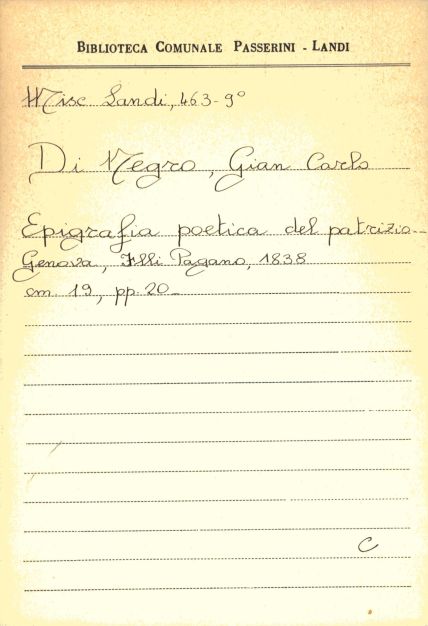 BIBLIOTECA COMUNALE PASSERINI - LANDI
Misc Landi, 463-9°
Di Negro, Gian Carlo
Epigrafia poetica del patrizio...
Genova, F.lli Pagano, 1838
cm. 19, pp. 20_
C